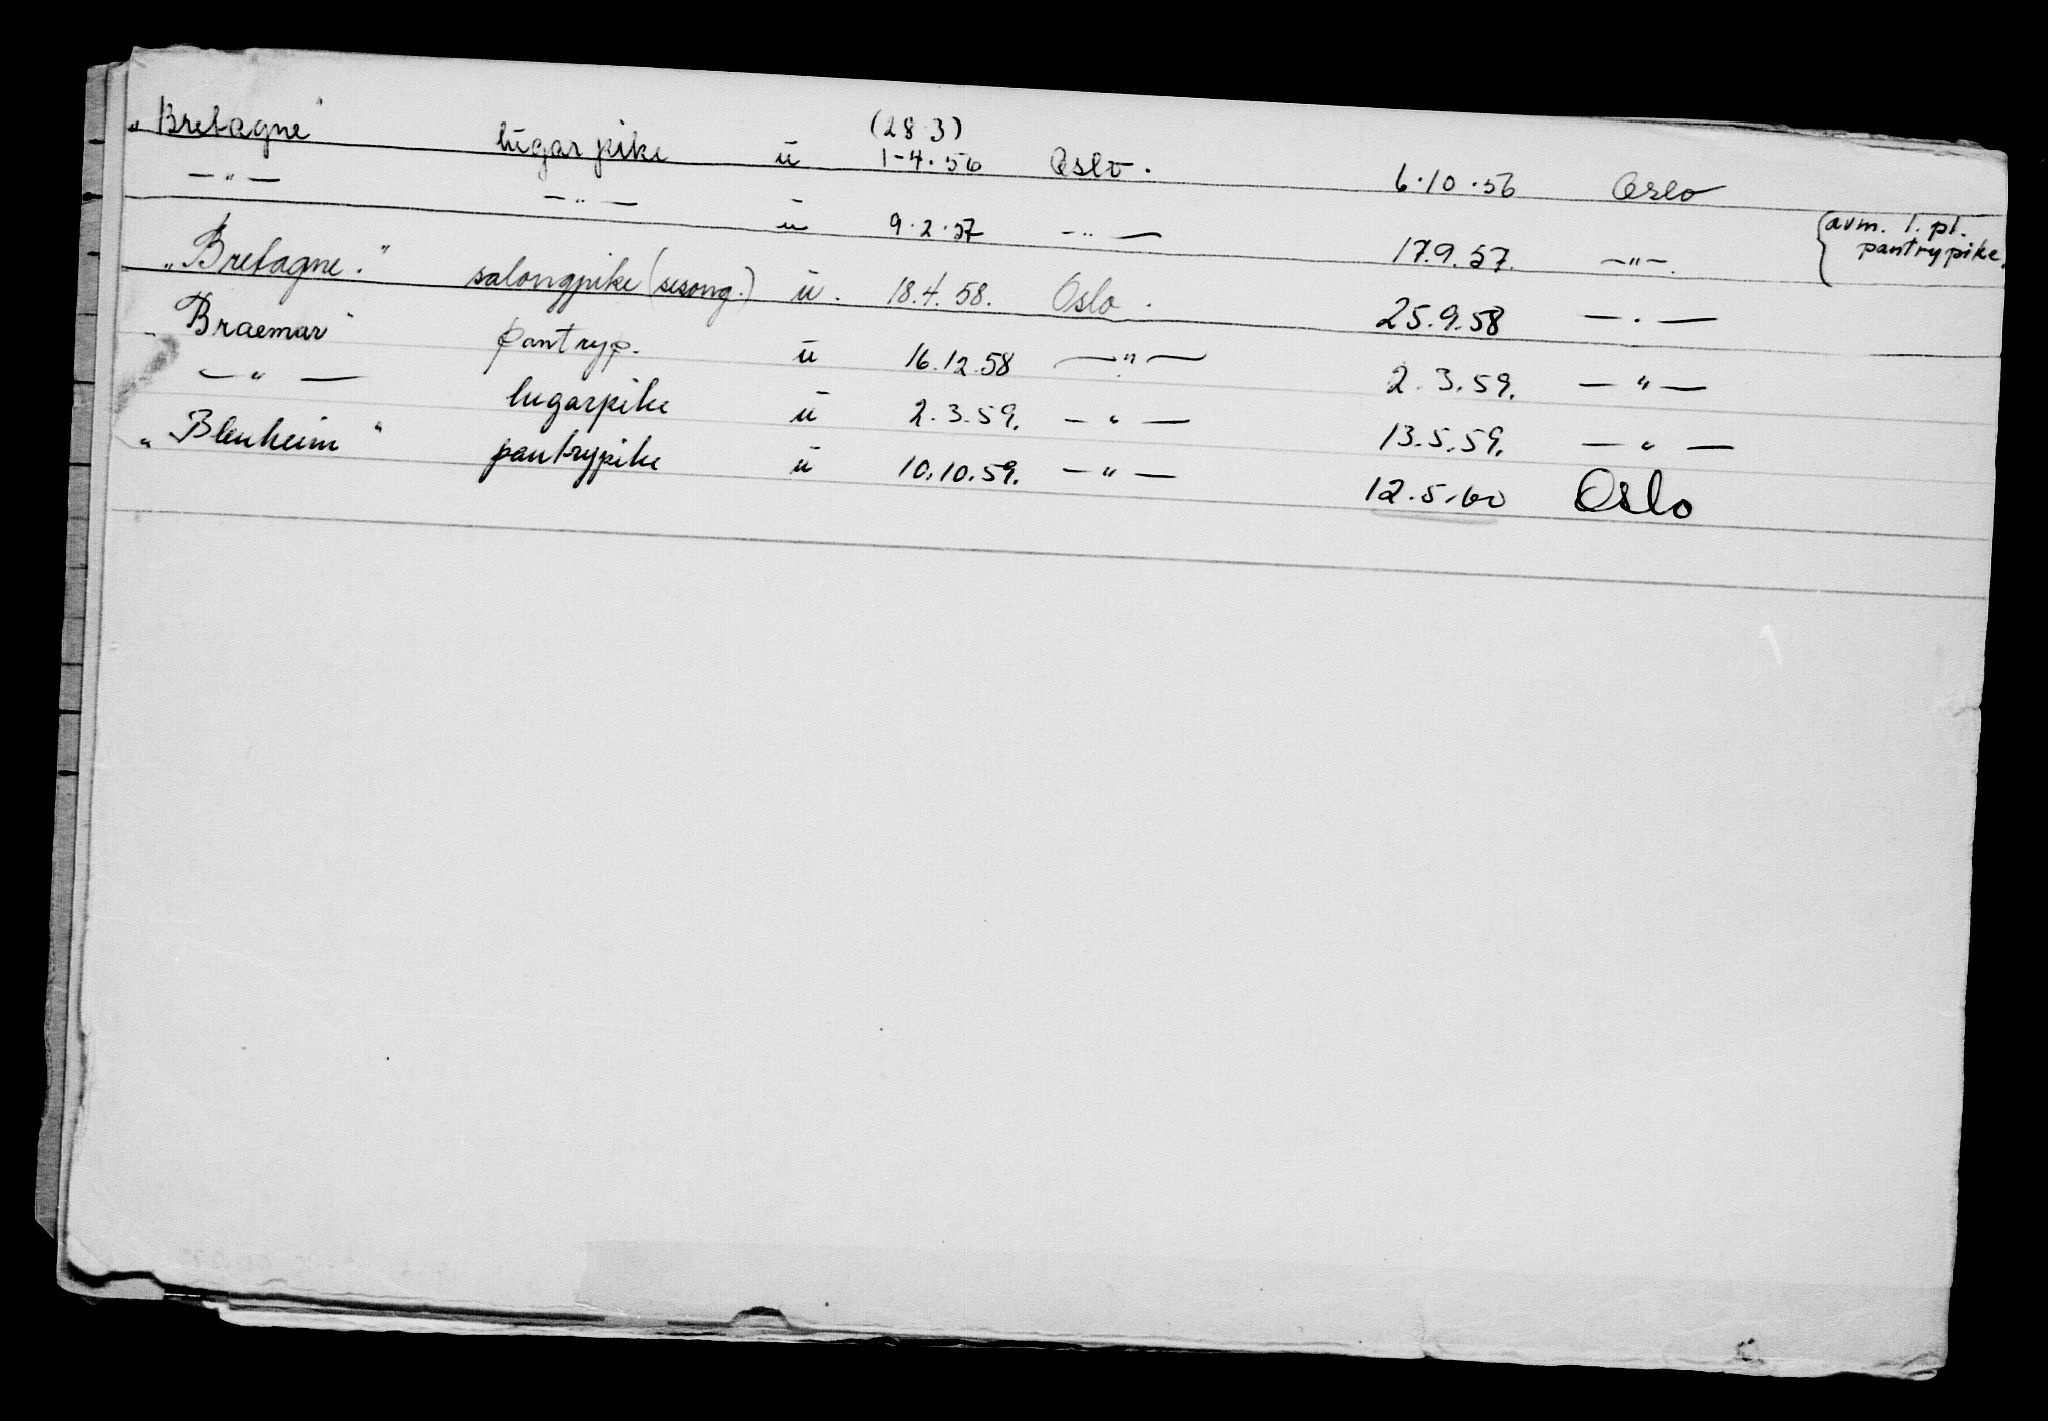 (28.3)
„Bretagne" lugarpike u 1-4.56 Oslo. 6.10.56 Oslo
—„— —„— u 9.2.57 —„— 17.9.57. —„—. {avm. 1. pl.
pantrypike.
„Bretagne." salongpike (sesong.) u. 18.4.58. Oslo. 25.9.58 —.—
„Braemar" pantryp. u 16.12.58 —„— 2.3.59. —„—
—„— lugarpike u 2.3.59. —„— 13.5.59. —„—
„Blenheim" pantrypike u 10.10.59. —„— 12.5.60 Oslo